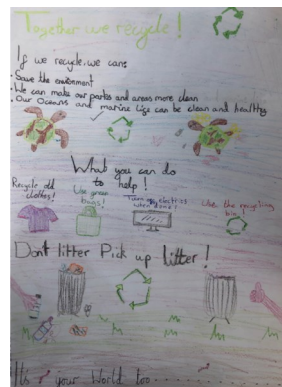 Together we recycle!
If we recycle, we can:
• Save the enviroment
• We can make our parks and areas more clean
• Our Oceans and marine life can be clean and healthy
What you can do
to help!
Recycle old
clothes!
Use green
bags!
Turn electrics
when done!
Use the recycling
bin!
Don't litter Pick up litter!
It's your World too